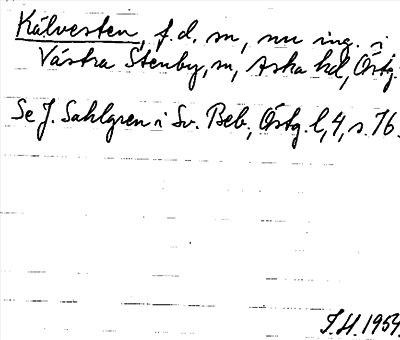 Kälvesten, f.d. sn, nu ing. i
Västra Stenby, sn, Aska hd, Östg.
Se J. Sahlgren i Sv. Beb., Östg. l, 4, s. 76.
J.H. 1954.